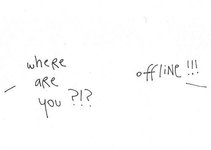 where
are
you ?!?
offline !!!